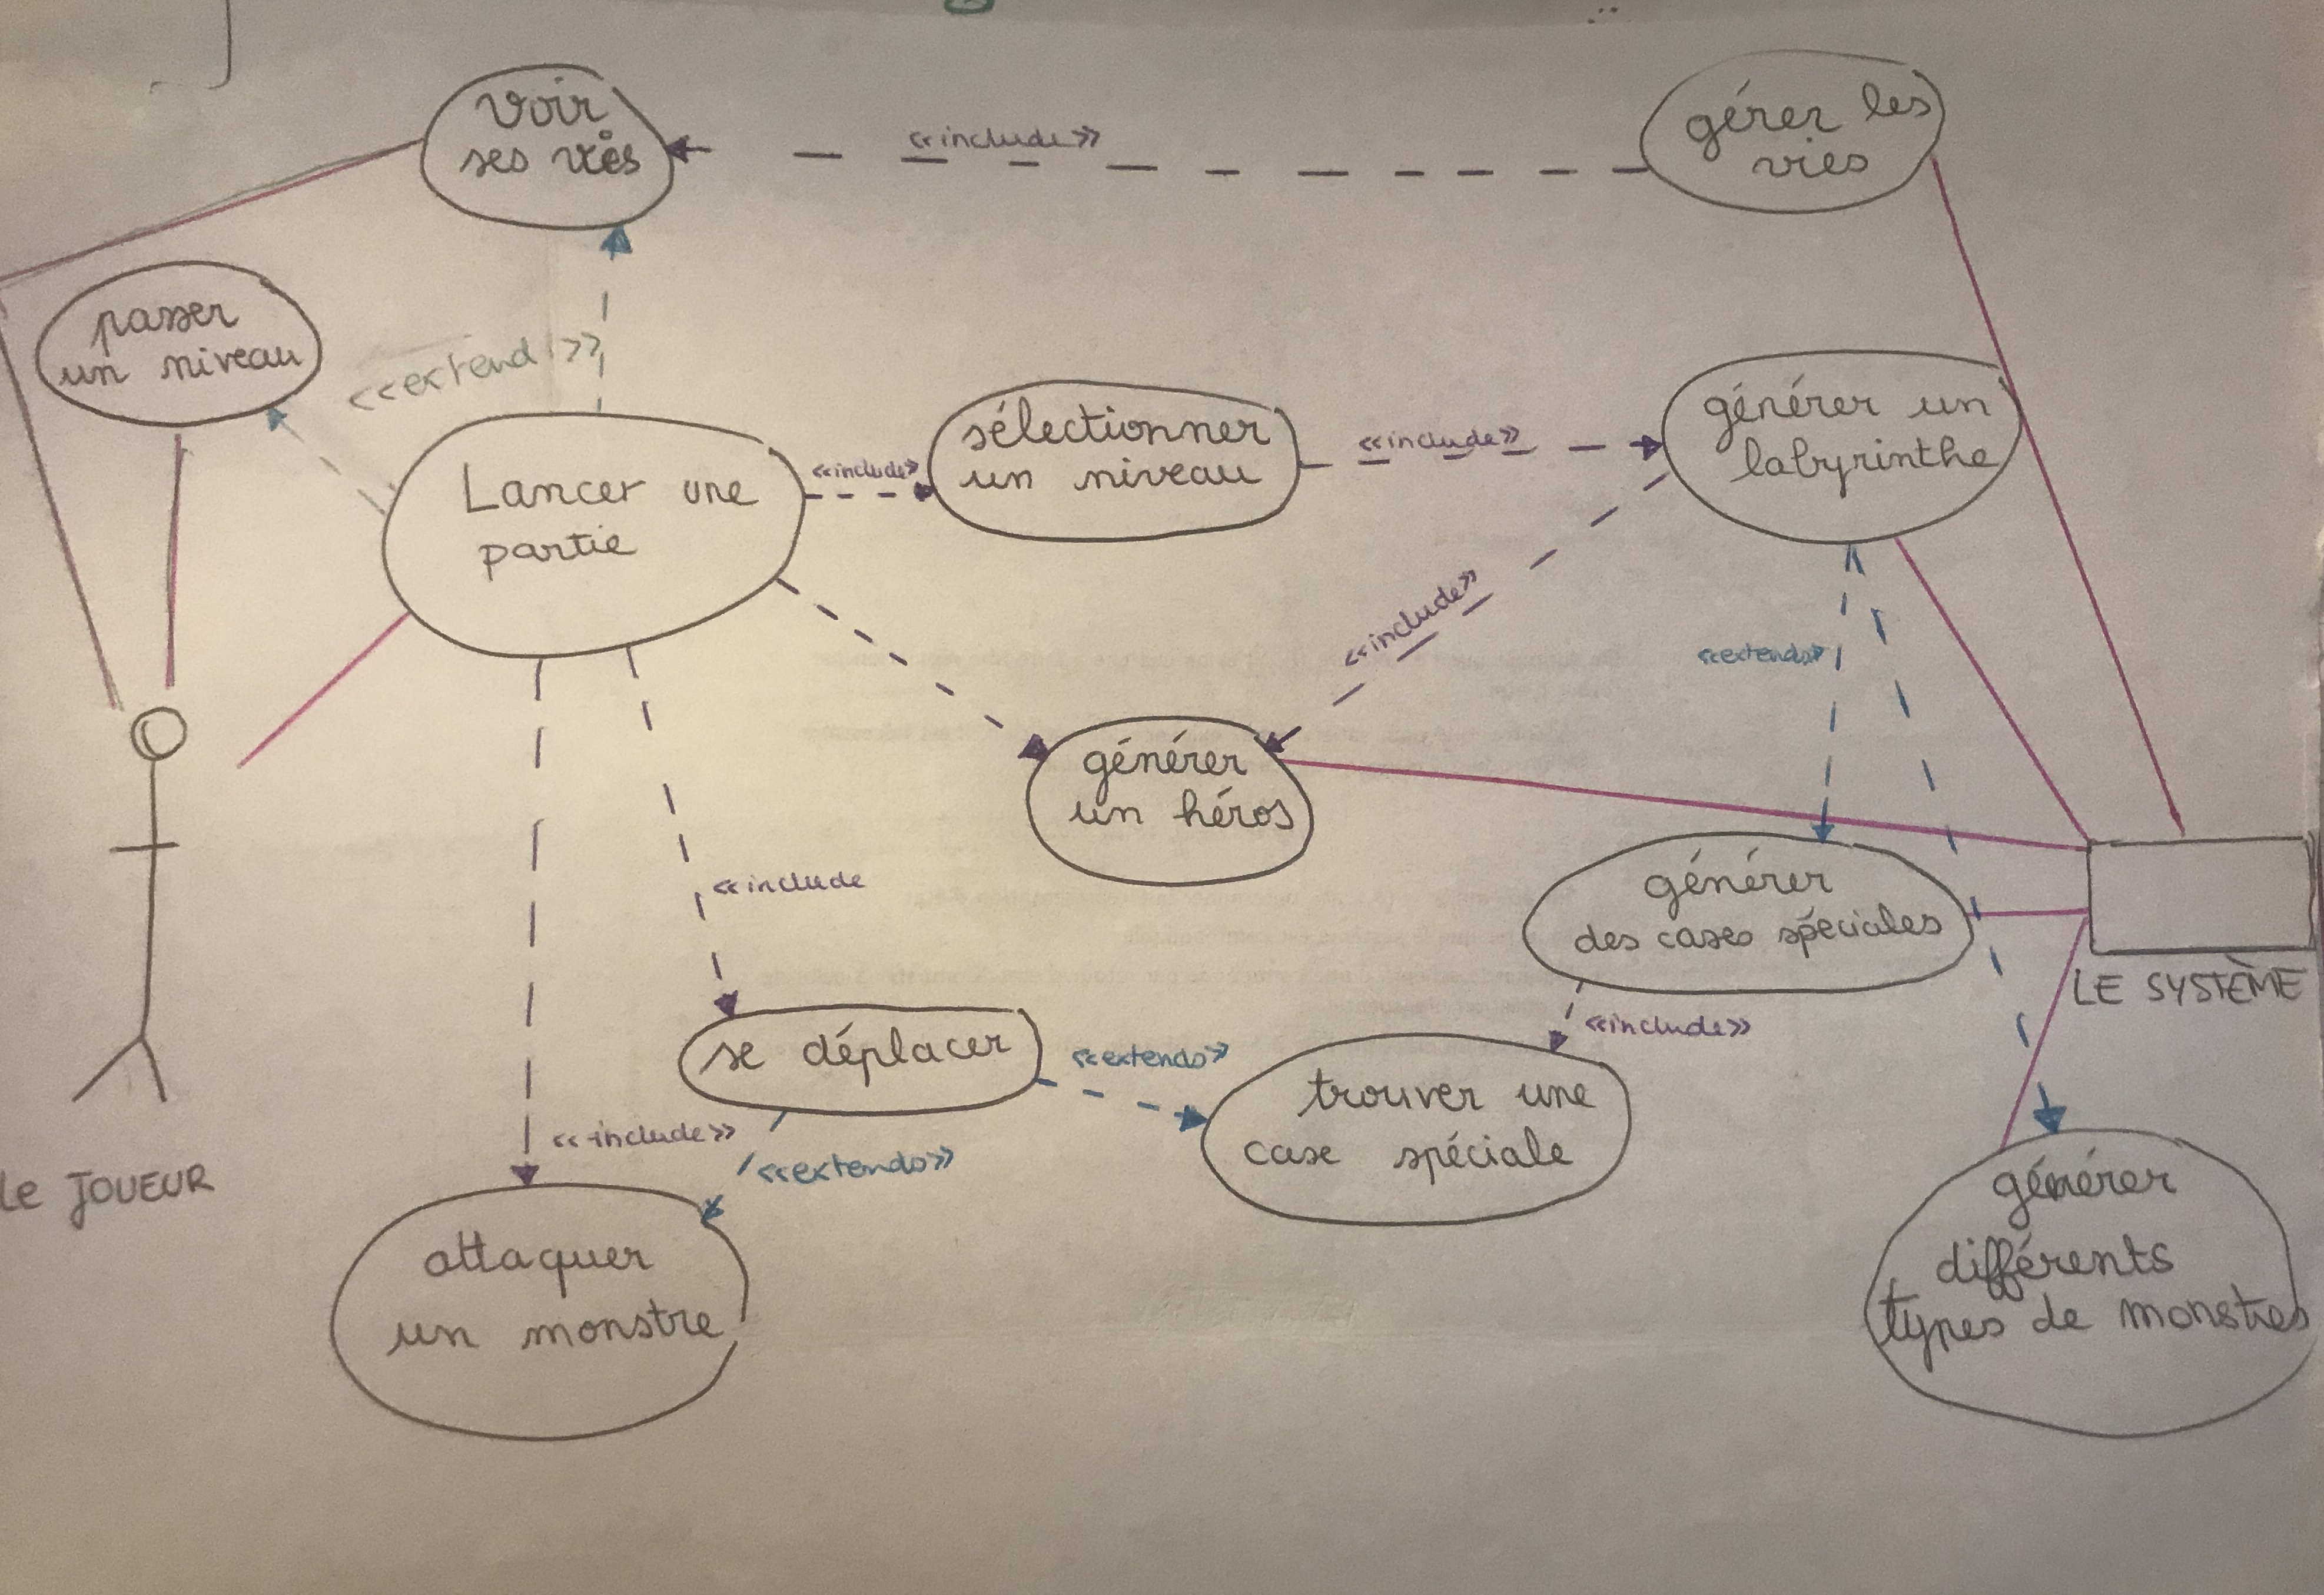 voir
ses vies
<<include>>
gérer les
vies
passer
un niveau
<<extend>>
Lancer une
partie
<<include>>
sélectionner
un niveau
<<include>>
générer un
labyrinthe
<<include>>
<<extends>>
générer
un héros
<<include
générer
des cases spéciales
LE SYSTÈME
<<include>>
se déplacer
<<extends>>
trouver une
case spéciale
<<include>>
<<extends>>
Le JOUEUR
attaquer
un monstre
générer
différents
types de monstres